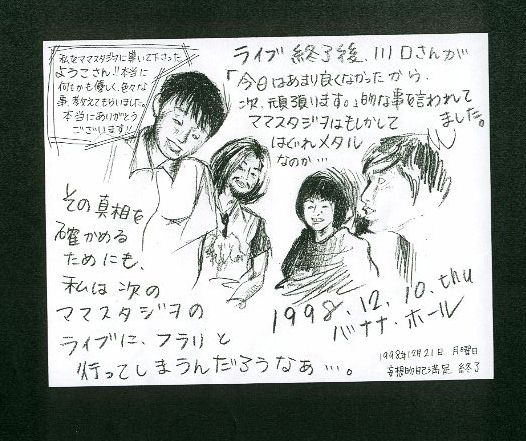 私をママスタジヲに導いて下さった
ようこさん!!本当に
何もかも優しく、色々な
事、教えてもらいました。
本当にありがとう
ございます!!
ライブ終了後、川口さんが
「今日はあまり良くなかったから、
次、頑張ります。」的な事を言われて
ました。
ママスタジヲはもしかして
はぐれメタル
なのか…
その真相を
確かめる
ためにも、
私は次の
ママスタジヲの
ライブに、フラリと
行ってしまうんだろうなぁ…。
1998.12.10.thu
バナナ・ホール
1998年12月21日 月曜日
妄想的自己満足 終了